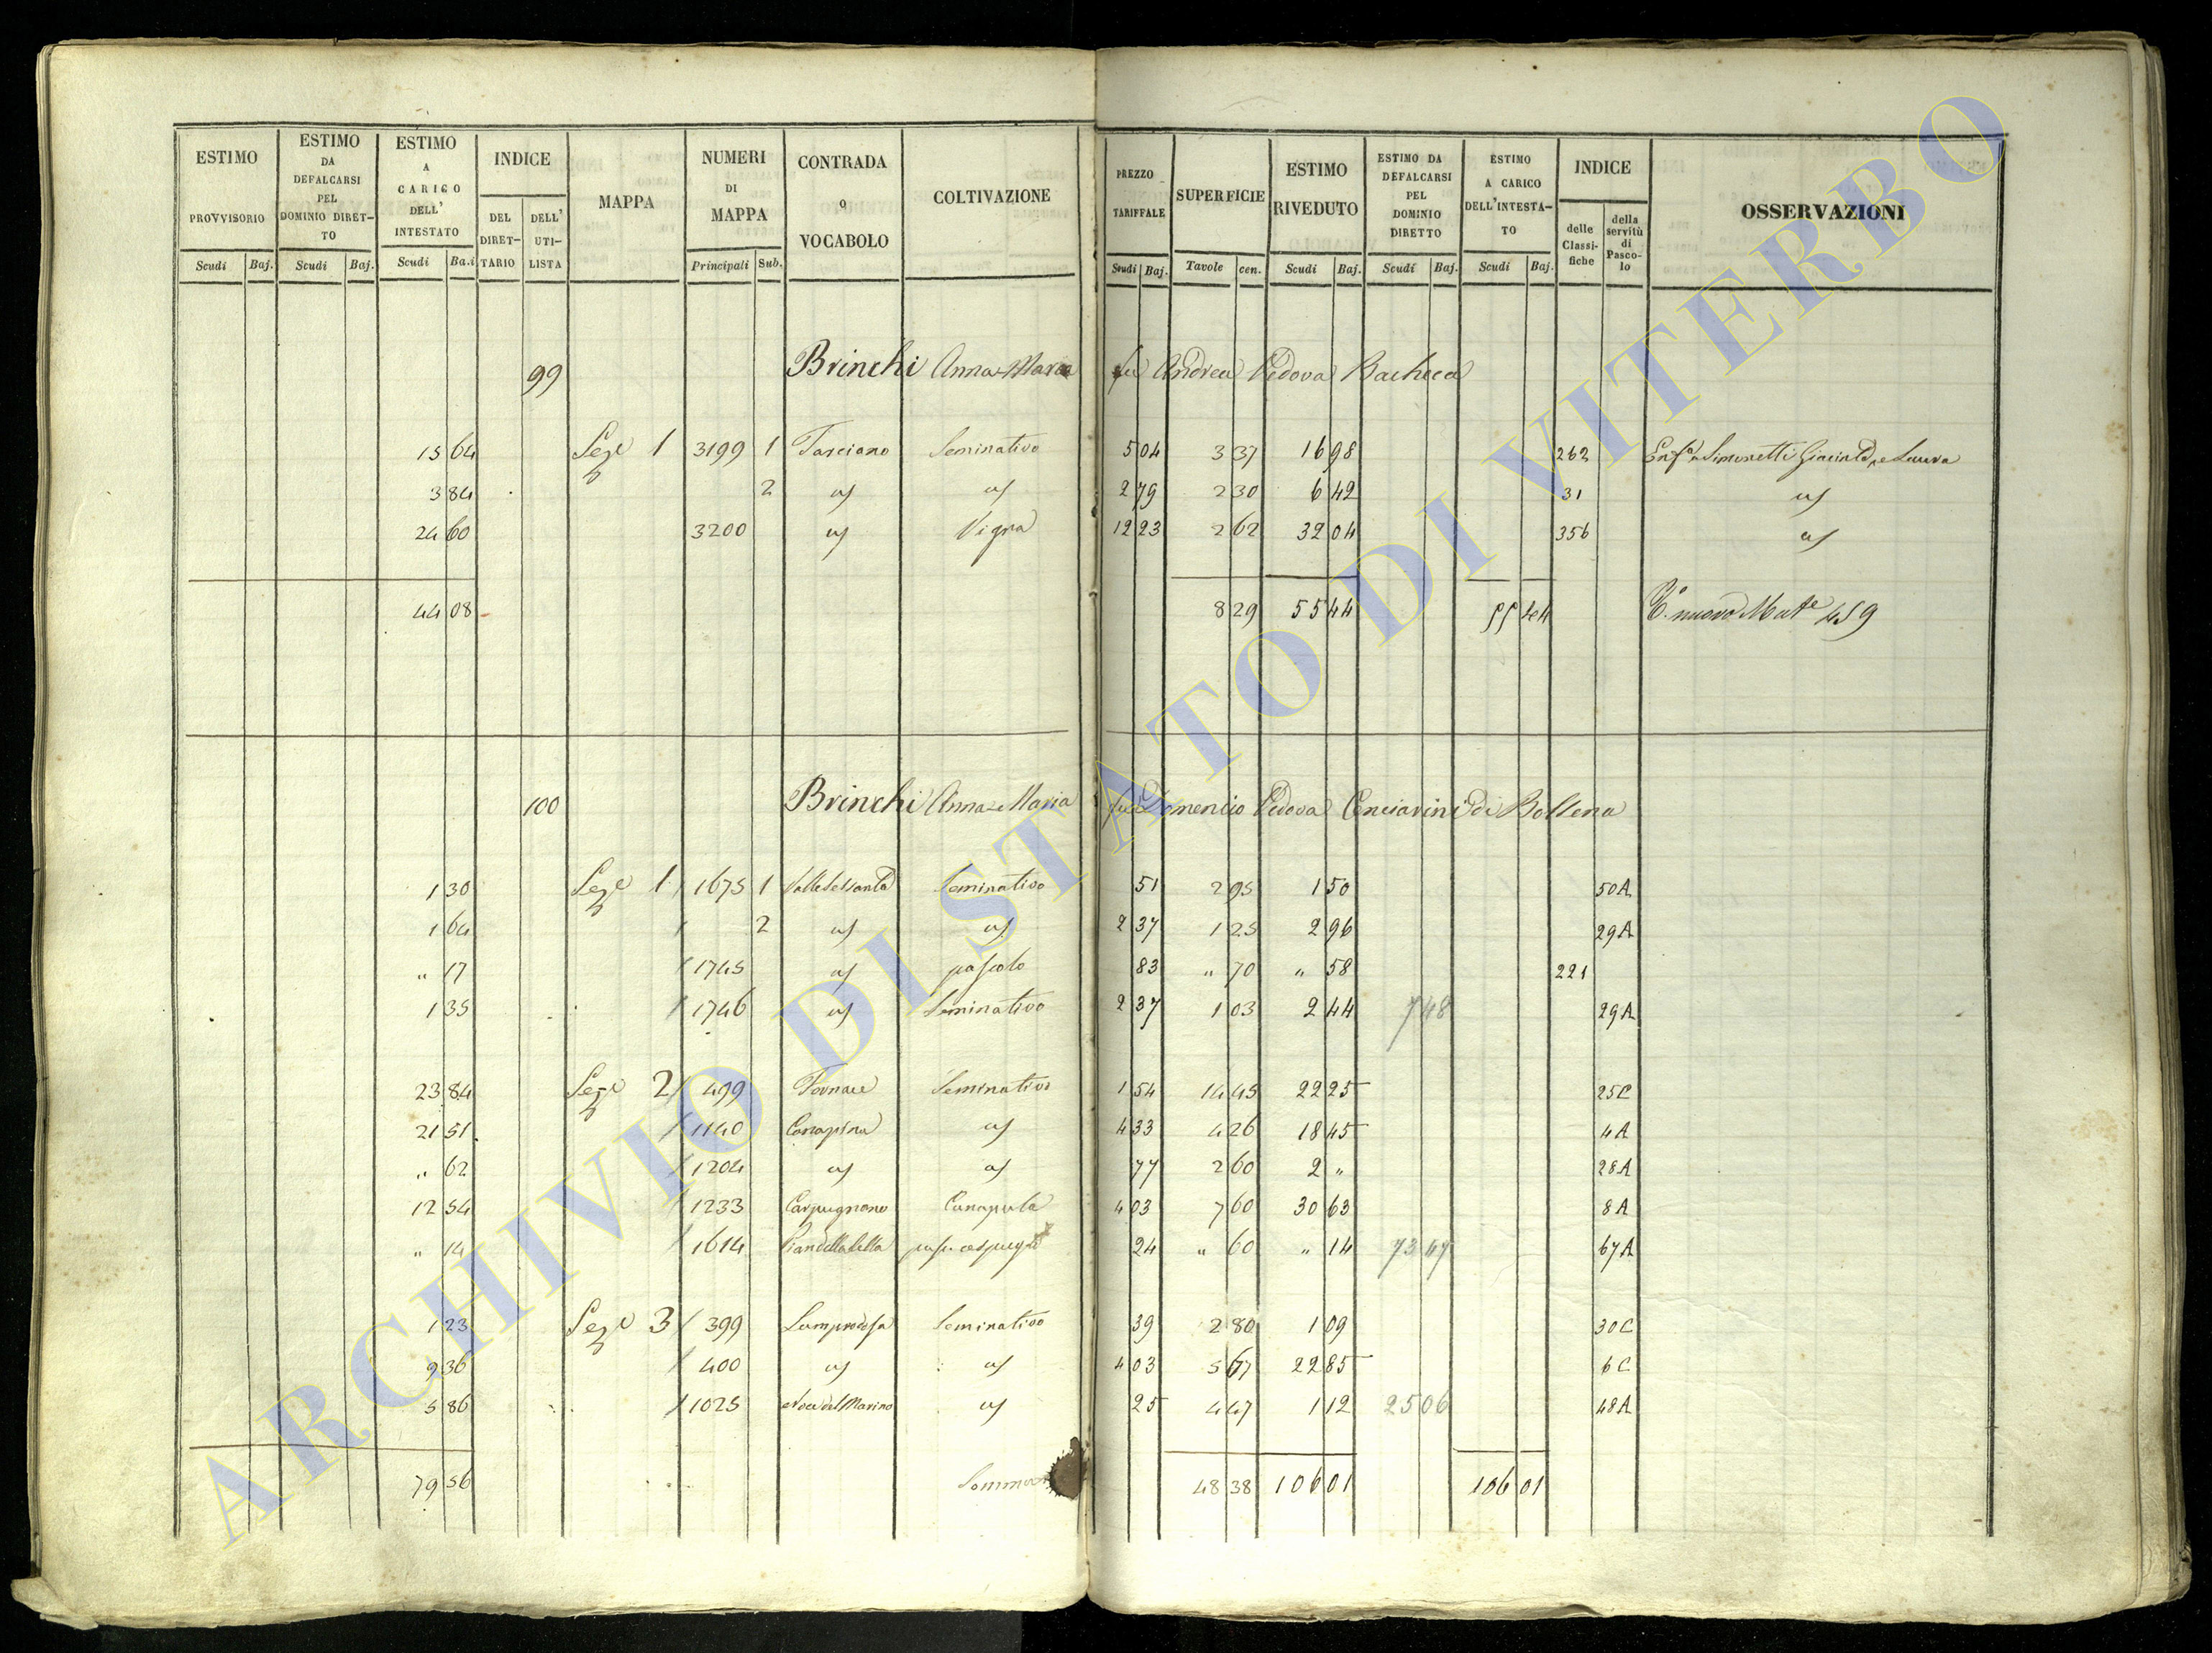 ESTIMO PROVVISORIO Scudi Baj.
ESTIMO DA DEFALCARSI PEL DOMINIO DIRETTO Scudi Baj.
ESTIMO A CARICO DELL' INTESTATO Scudi Ba.i
INDICE DEL DIRETTARIO DELL' UTILISTA
MAPPA
NUMERI DI MAPPA Principali Sub.
CONTRADA O VOCABOLO
COLTIVAZIONE
PREZZO TARIFFALE Scudi Baj.
SUPERFICIE Tavole cen.
ESTIMO RIVEDUTO Scudi Baj.
ESTIMO DA DEFALCARSI PEL DOMINIO DIRETTO Scudi Baj.
ESTIMO A CARICO DELL'INTESTATO Scudi Baj.
INDICE delle Classifiche della servitù di Pascolo
OSSERVAZIONI
99 Brinchi Anna Maria fu Andrea Vedova Bacheca
15 64 Seze 1 3199 1 Tarciano Seminativo 5 04 3 37 16 98 262 Enfa a Simonetti Giacinto, e Laura
3 84 2 as as 2 79 2 30 6 42 31 as
24 60 3200 as Vigna 12 23 2 62 32 04 356 as
44 08 8 29 55 44 55 44 Co nuovo Mate 459
100 Brinchi Anna Maria fu Domenico Vedova Cenciarini di Bolsena
1 30 Seze 1 1675 1 Seminativo 51 2 95 1 50 50A
1 64 2 as as 2 37 1 25 2 96 29A
" 17 1745 as pascolo 83 " 70 " 58 221
1 35 1746 as Seminativo 2 37 1 03 2 44 7 48 29A
23 84 Seze 2 499 Fornace Seminativo 1 54 14 45 22 25 25C
21 51 1140 Canapina as 4 33 4 26 18 45 4A
" 62 1204 as as 77 2 60 2 " 28A
12 54 1233 Carpugnano Canapula 4 03 7 60 30 63 8A
" 14 1614 Piandellabella 24 " 60 " 14 73 47 67A
1 23 Seze 3 399 Seminativo 39 2 80 1 09 30C
9 36 400 as as 4 03 5 67 22 85 6C
5 86 1025 Noce del Marino as 25 4 47 1 12 25 06 48A
79 56 Somma 48 38 106 01 106 01
ARCHIVIO DI STATO DI VITERBO